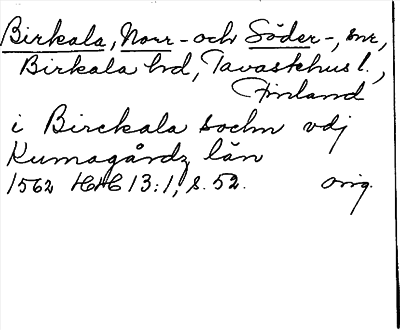 Birkala, Norr- och Söder-, snr,
Birkala hd, Tavastehus l.,
Finland
i Birckala sochn vdj
Kumagårdz län
1562 HH 13:1, s. 52. orig.